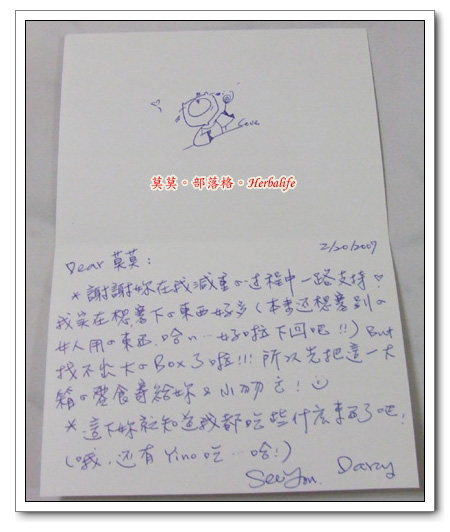 Love
莫莫。部落格。Herbalife
2/20/2009
Dear 莫莫：
*謝謝妳在我減重の過程中一路支持♥
我実在想寄下の東西好多(本来还想寄別の
女人用の東西，哈…好啦下回吧!!) But
找不出大の Box了啦!!! 所以先把這一大
箱の零食寄給妳&小
*這下妳就知道我都吃些什広東西了吧!
(哦，还有 Yino 吃…哈!)
See You. Darzy